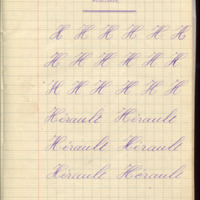 H H H H H H
H H H H H H
H H H H H H
Hérault Hérault
Hérault Hérault
Hérault Hérault